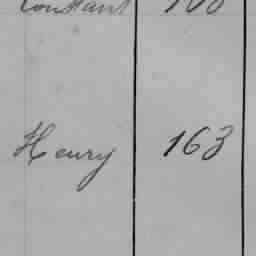 Constant
Henry 163